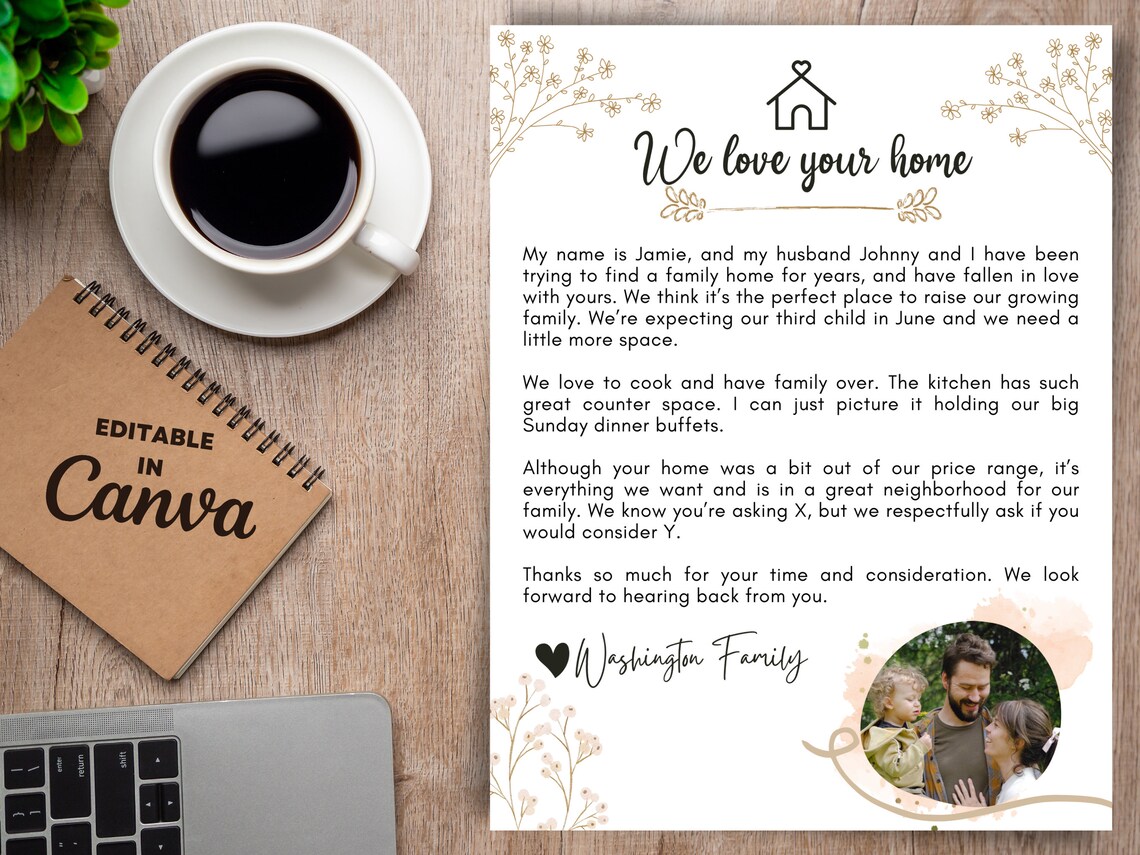 We love your home
My name is Jamie, and my husband Johnny and I have been
trying to find a family home for years, and have fallen in love
with yours. We think it’s the perfect place to raise our growing
family. We’re expecting our third child in June and we need a
little more space.
We love to cook and have family over. The kitchen has such
great counter space. I can just picture it holding our big
Sunday dinner buffets.
Although your home was a bit out of our price range, it’s
everything we want and is in a great neighborhood for our
family. We know you’re asking X, but we respectfully ask if you
would consider Y.
Thanks so much for your time and consideration. We look
forward to hearing back from you.
Washington Family
EDITABLE
IN
Canva
enter
return
shift